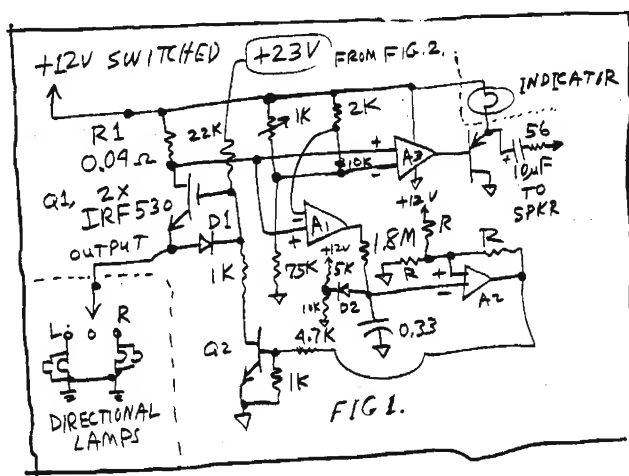 +12V SWITCHED
+23V
FROM FIG.2.
INDICATOR
R1
0.09Ω
22K
1K
2K
10K
+
-
A3
+12V
56
+
10µF
TO
SPKR
Q1,
2X
IRF530
D1
OUTPUT
-
+
A1
1.8M
R
R
R
+
-
A2
1K
75K
+12V
5K
10K
D2
0.33
4.7K
Q2
1K
L
O
R
DIRECTIONAL
LAMPS
FIG1.